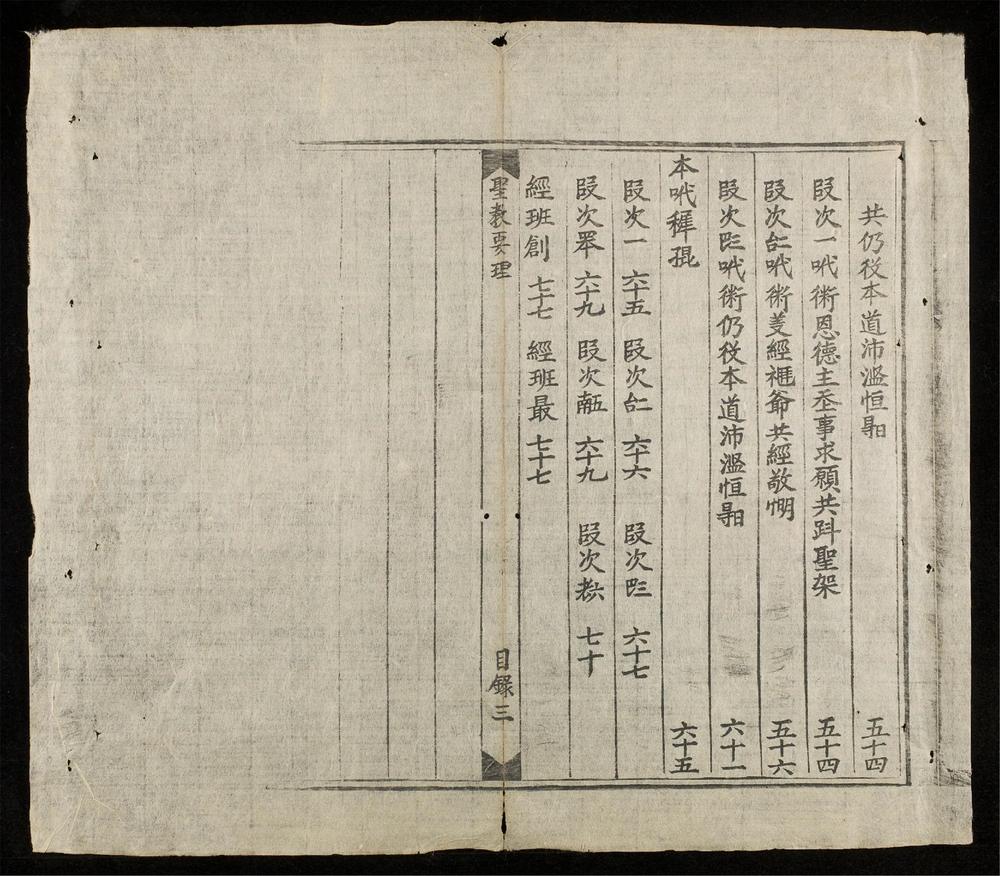 共仍役本道沛濫恒𣈜 五十四
段次一𠰺術恩德主丞事求願共𨁪聖架 五十四
段次𠄩𠰺術 經 爺共經敬𢜠 五十六
段次𠀧𠰺術仍役本道沛濫恒𣈜 六十一
本𠰺稺𡥵 六十五
段次一 六十五 段次𠄩 六十六 段次𠀧 六十七
段次𦊚 六十九 段次𠄼 六十九 段次𦒹 七十
經班創 七十七 經班最 七十七
聖教要理 目錄三